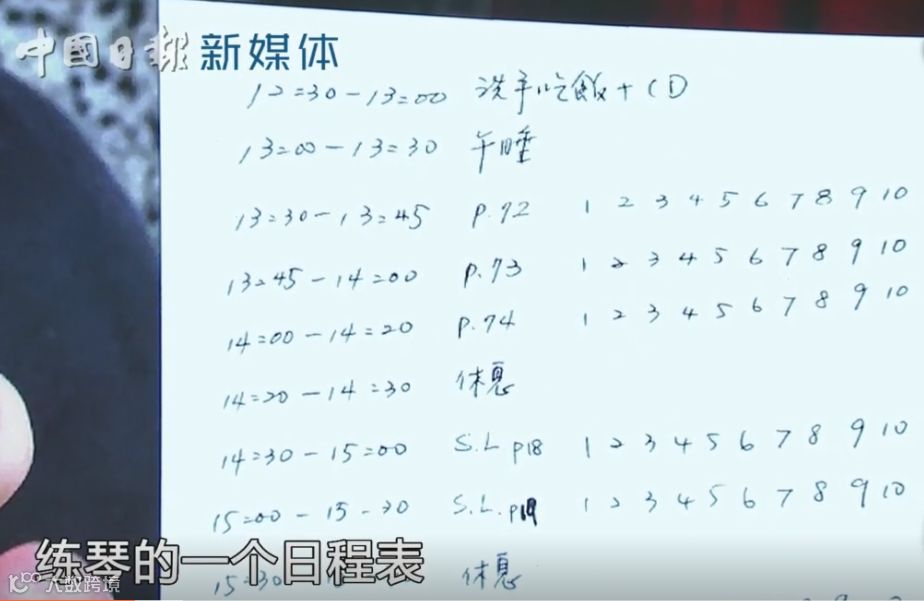 中國日報 新媒体
12=30-13=00 洗手吃飯+CD
13=00-13=30 午睡
13=30-13=45 p.72 1 2 3 4 5 6 7 8 9 10
13=45-14=00 p.73 1 2 3 4 5 6 7 8 9 10
14=00-14=20 p.74 1 2 3 4 5 6 7 8 9 10
14=20-14=30 休息
14=30-15=00 S.L p18 1 2 3 4 5 6 7 8 9 10
15=00-15-30 S.L.p19 1 2 3 4 5 6 7 8 9 10
练琴的一个日程表
15=30 休息
大数跨境